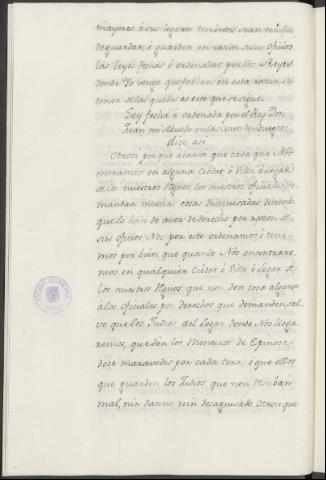 mayores é sus lugares tenientes sean tenudos
de guardar, é guarden en razon de sus oficios
las leyes fechas é ordenadas por los Reyes
donde Yo vengo que fablan en esta razon su
tenor de las quales es este que se sigue.
Ley fecha é ordenada por el Rey Don
Juan mi Abuelo en las Cortes de Burgos
dise asi
Otrosi por que acaesce que cada que Nos
entramos en alguna Cibdat ó Villa ó logar
de los nuestros Regnos, los nuestros oficiales de-
mandan muchas cosas desaguisadas disiendo
que lo han de aver de derecho por razon de
sus oficios Nos por este ordenamos é tene-
mos por bien que quando Nos encontrare-
mos en qualquier Cibdat ó Villa ó logar de
los nuestros Regnos que non den cosa alguna
á los oficiales por derechos que demanden, sal-
vo que los Judios del logar donde Nos llega-
remos, que den los Monteros de Espinosa
doce maravedis por cada tora, é que ellos
que guarden los Judios que non resciban
mal, nin danno, nin desaguisado. Otrosi que